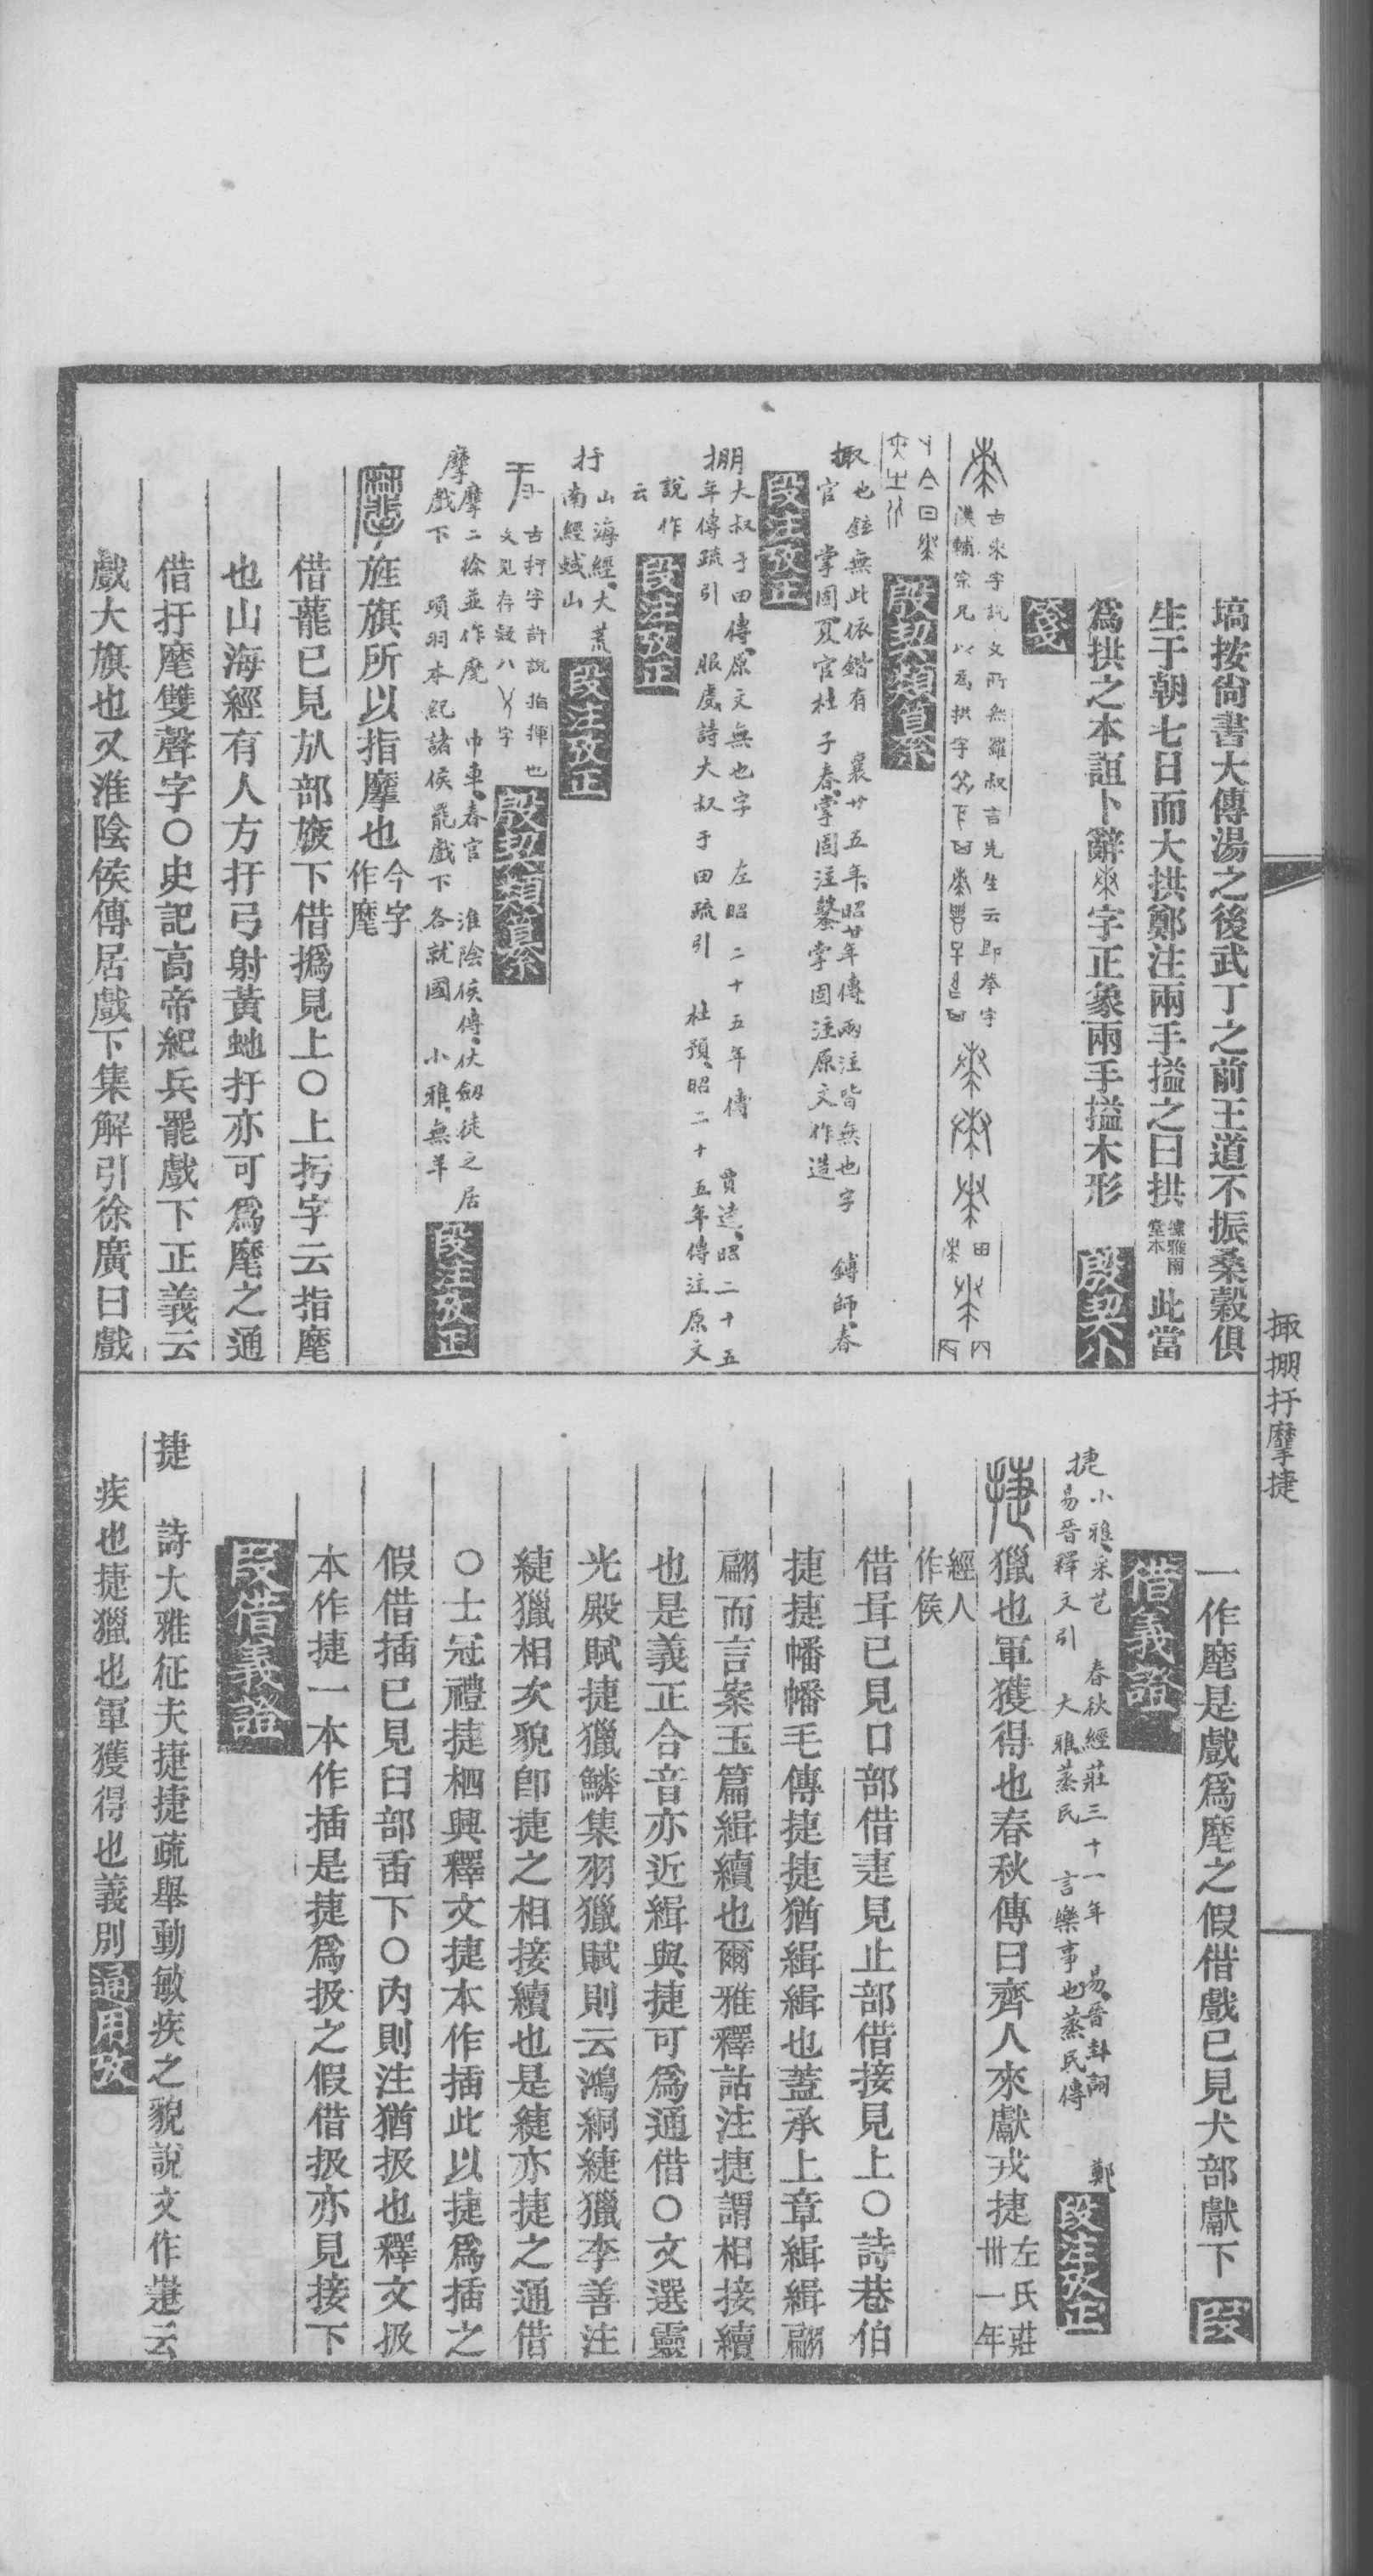 塙按尙書大傳湯之後武丁之前王道不振桑穀俱
生于朝七日而大拱鄭注兩手搤之曰拱 據雅雨堂本 此當
爲拱之本誼卜辭字正象兩手搤木形 殷契小
箋
古來字說文所無羅叔言先生云即奉字
漢輔宗兄以爲拱字
殷契類篹
掫也鉉無此依鍇有 襄廿五年昭廿年傳兩注皆無也字 鎛師春
官 掌固夏官杜子春掌固注鼜掌固注原文作造
段注攷正
掤大叔于田傳原文無也字 左昭二十五年傳 賈逵昭二十五
年傳疏引 服虔詩大叔于田疏引 杜預昭二十五年傳注原文
說作
云
段注攷正
扜山海經大荒
南經蜮山
段注攷正
古扜字許說指揮也
文見存疑八字
殷契類篹
摩摩二徐並作麾 巾車春官 淮陰侯傳仗劔徒之居
戲下 項羽本紀諸侯罷戲下各就國 小雅無羊
段注攷正
旌旗所以指摩也 今字作麾
借蘢已見㫃部旇下借撝見上○上扝字云指麾
也山海經有人方扜弓射黃虵扜亦可爲麾之通
借扜麾雙聲字○史記高帝紀兵罷戲下正義云
戲大旗也又淮陰侯傳居戲下集解引徐廣曰戲
掫掤扜摩捷
一作麾是戲爲麾之假借戲已見犬部獻下 段
借義證
捷小雅采芑 春秋經莊三十一年 易晉卦詞 鄭
易晉釋文引 大雅蒸民 言樂事也蒸民傳
段注攷正
捷 獵也軍獲得也春秋傳曰齊人來獻戎捷 左氏莊卅一年
經人作侯
借咠已見口部借疌見止部借接見上○詩巷伯
捷捷幡幡毛傳捷捷猶緝緝也蓋承上章緝緝翩
翩而言案玉篇緝續也爾雅釋詁注捷謂相接續
也是義正合音亦近緝與捷可爲通借○文選靈
光殿賦捷獵鱗集羽獵賦則云鴻絧緁獵李善注
緁獵相次貌卽捷之相接續也是緁亦捷之通借
○士冠禮捷柶興釋文捷本作插此以捷爲插之
假借插已見臼部臿下○內則注猶扱也釋文扱
本作捷一本作插是捷爲扱之假借扱亦見接下
段借義證
捷 詩大雅征夫捷捷疏舉動敏疾之貌說文作疌云
疾也捷獵也軍獲得也義別 通用攷